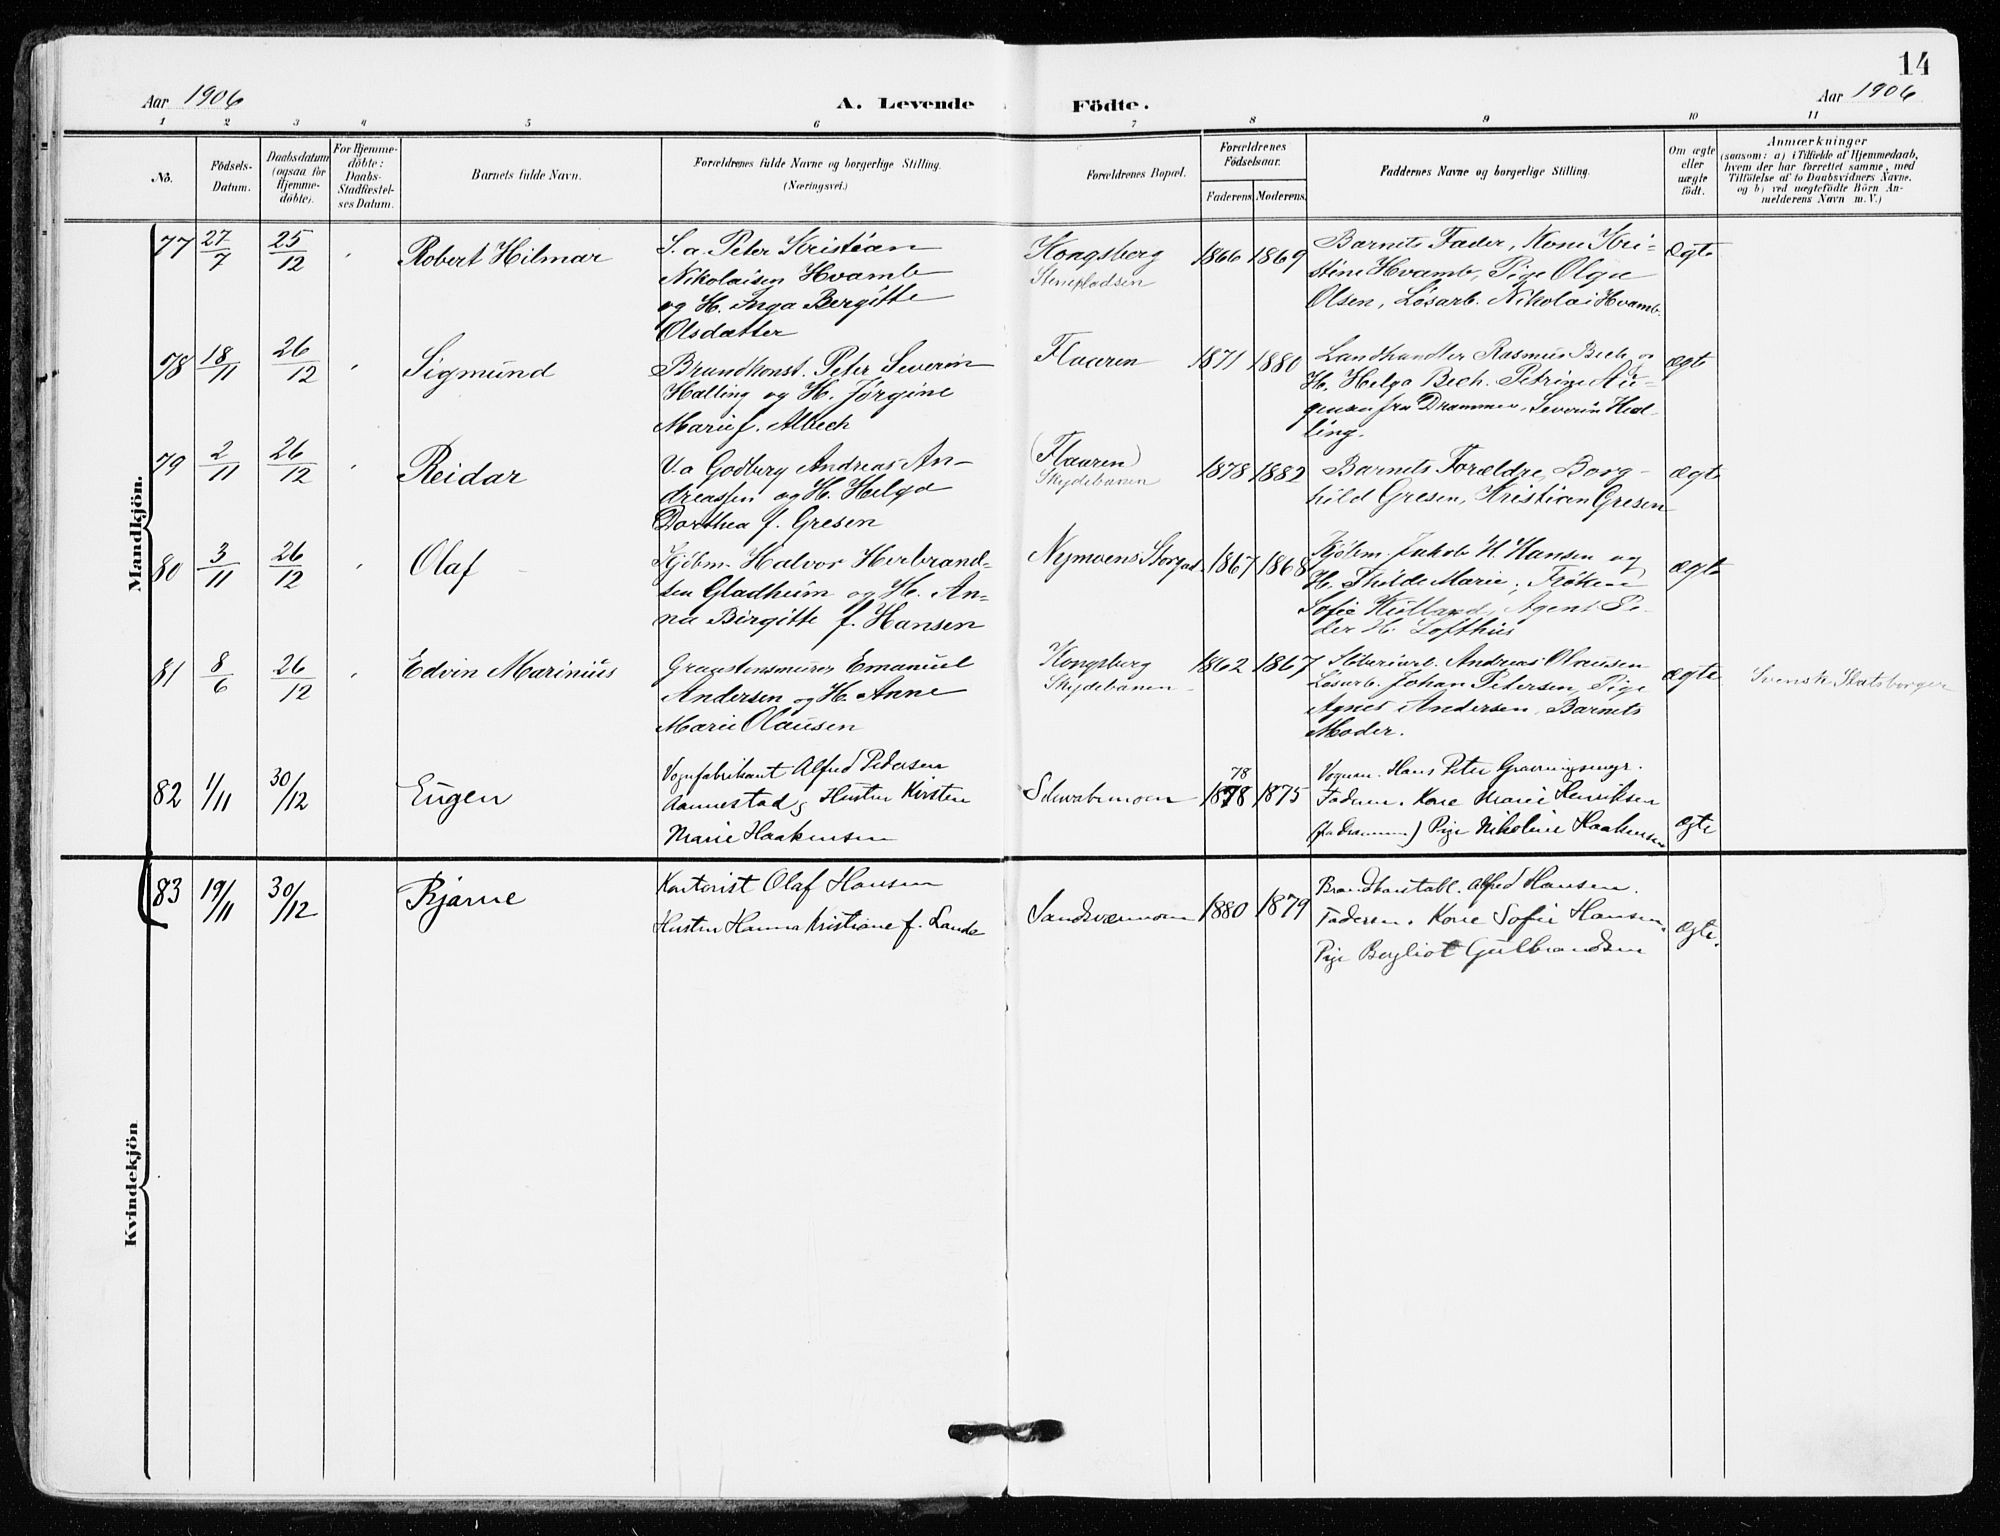 14
Aar 1906 A. Levende Födte. Aar 1906
1 2 3 4 5 6 7 8 9 10 11
No. Födsels-Datum. Daabsdatum (ogsaa for Hjemme-döbte). For Hjemme-döbte: Daabs-Stadfæstel-ses Datum. Barnets fulde Navn. Forældrenes fulde Navne og borgerlige Stilling. (Næringsvei.) Forældrenes Bopæl. Forældrenes Födselsaar. Faderens Moderens. Faddernes Navne og borgerlige Stilling. Om ægte eller uægte födt. Anmærkninger (saasom: a) i Tilfælde af Hjemmedaab, hvem der har forrettet samme, med Tilföielse af to Daabsvidners Navne, og b) ved uægtefödte Börn An-melderens Navn m. V.)
Mandkjön.
77 27/7 25/12 Robert Hilmar S. a. Peter Kristian Kongsberg 1866 1869 Barnets Fader, Kone Kri- ægte
Nikolaisen Hvamb Stenepladsen stine Hvamb, Pige Olga
og H. Inga Bergitte Olsen, Løsarb. Nikolai Hvamb.
Olsdatter
78 18/11 26/12 Sigmund Brandkonst. Peter Severin Flaaren 1871 1880 Landhandler Rasmus Bech og ægte
Halling og H. Jørgine H. Helga Bech. Petrine
Marie f. Albech fra Drammen, Severin Hal-
ling.
79 2/11 26/12 Reidar V. a Godberg Andreas An- (Flaaren) 1878 1882 Barnets Forældre, Borg- ægte
dreassen og H. Helga Skydebanen hild Gresen, Kristian Gresen
Dorthea f. Gresen
80 3/11 26/12 Olaf Kjøbm. Halvor Herbrand- Nymoens Storgad. 1867 1868 Kjøbm. Jakob H. Hansen og ægte
sen Gladheim og H. An- H. Thilde Marie, Frøken
na Birgitte f. Hansen Sofie Kielland, Agent Pe-
der H. Lofthus
81 8/6 26/12 Edvin Marinius Graastensmurer Emanuel Kongsberg 1862 1867 Støberiarb. Andreas Olausen ægte Svensk Statsborger
Andersen og H. Anne Skydebanen Løsarb. Johan Petersen, Pige
Marie Olausen Agnes Andersen, Barnets
Moder.
82 1/11 30/12 Eugen Vognfabrikant Alfred Pedersen Schwabemoen 78 1878 1875 Vognm. Hans Peter
Aannestad og Hustru Kirsten Faderen. Kone Marie Henriksen
Marie Haakensen (fra Drammen) Pige Nikoline Haakensen ægte
83 19/11 30/12 Bjarne Kontorist Olaf Hansen Sandsværmoen 1880 1879 Brandkonstabl. Alfred Hansen.
Hustru Hanna Kristiane f. Lande Faderen. Kone Sofie Hansen. ægte.
Pige Bergliot Gulbrandsen
Kvindekjön